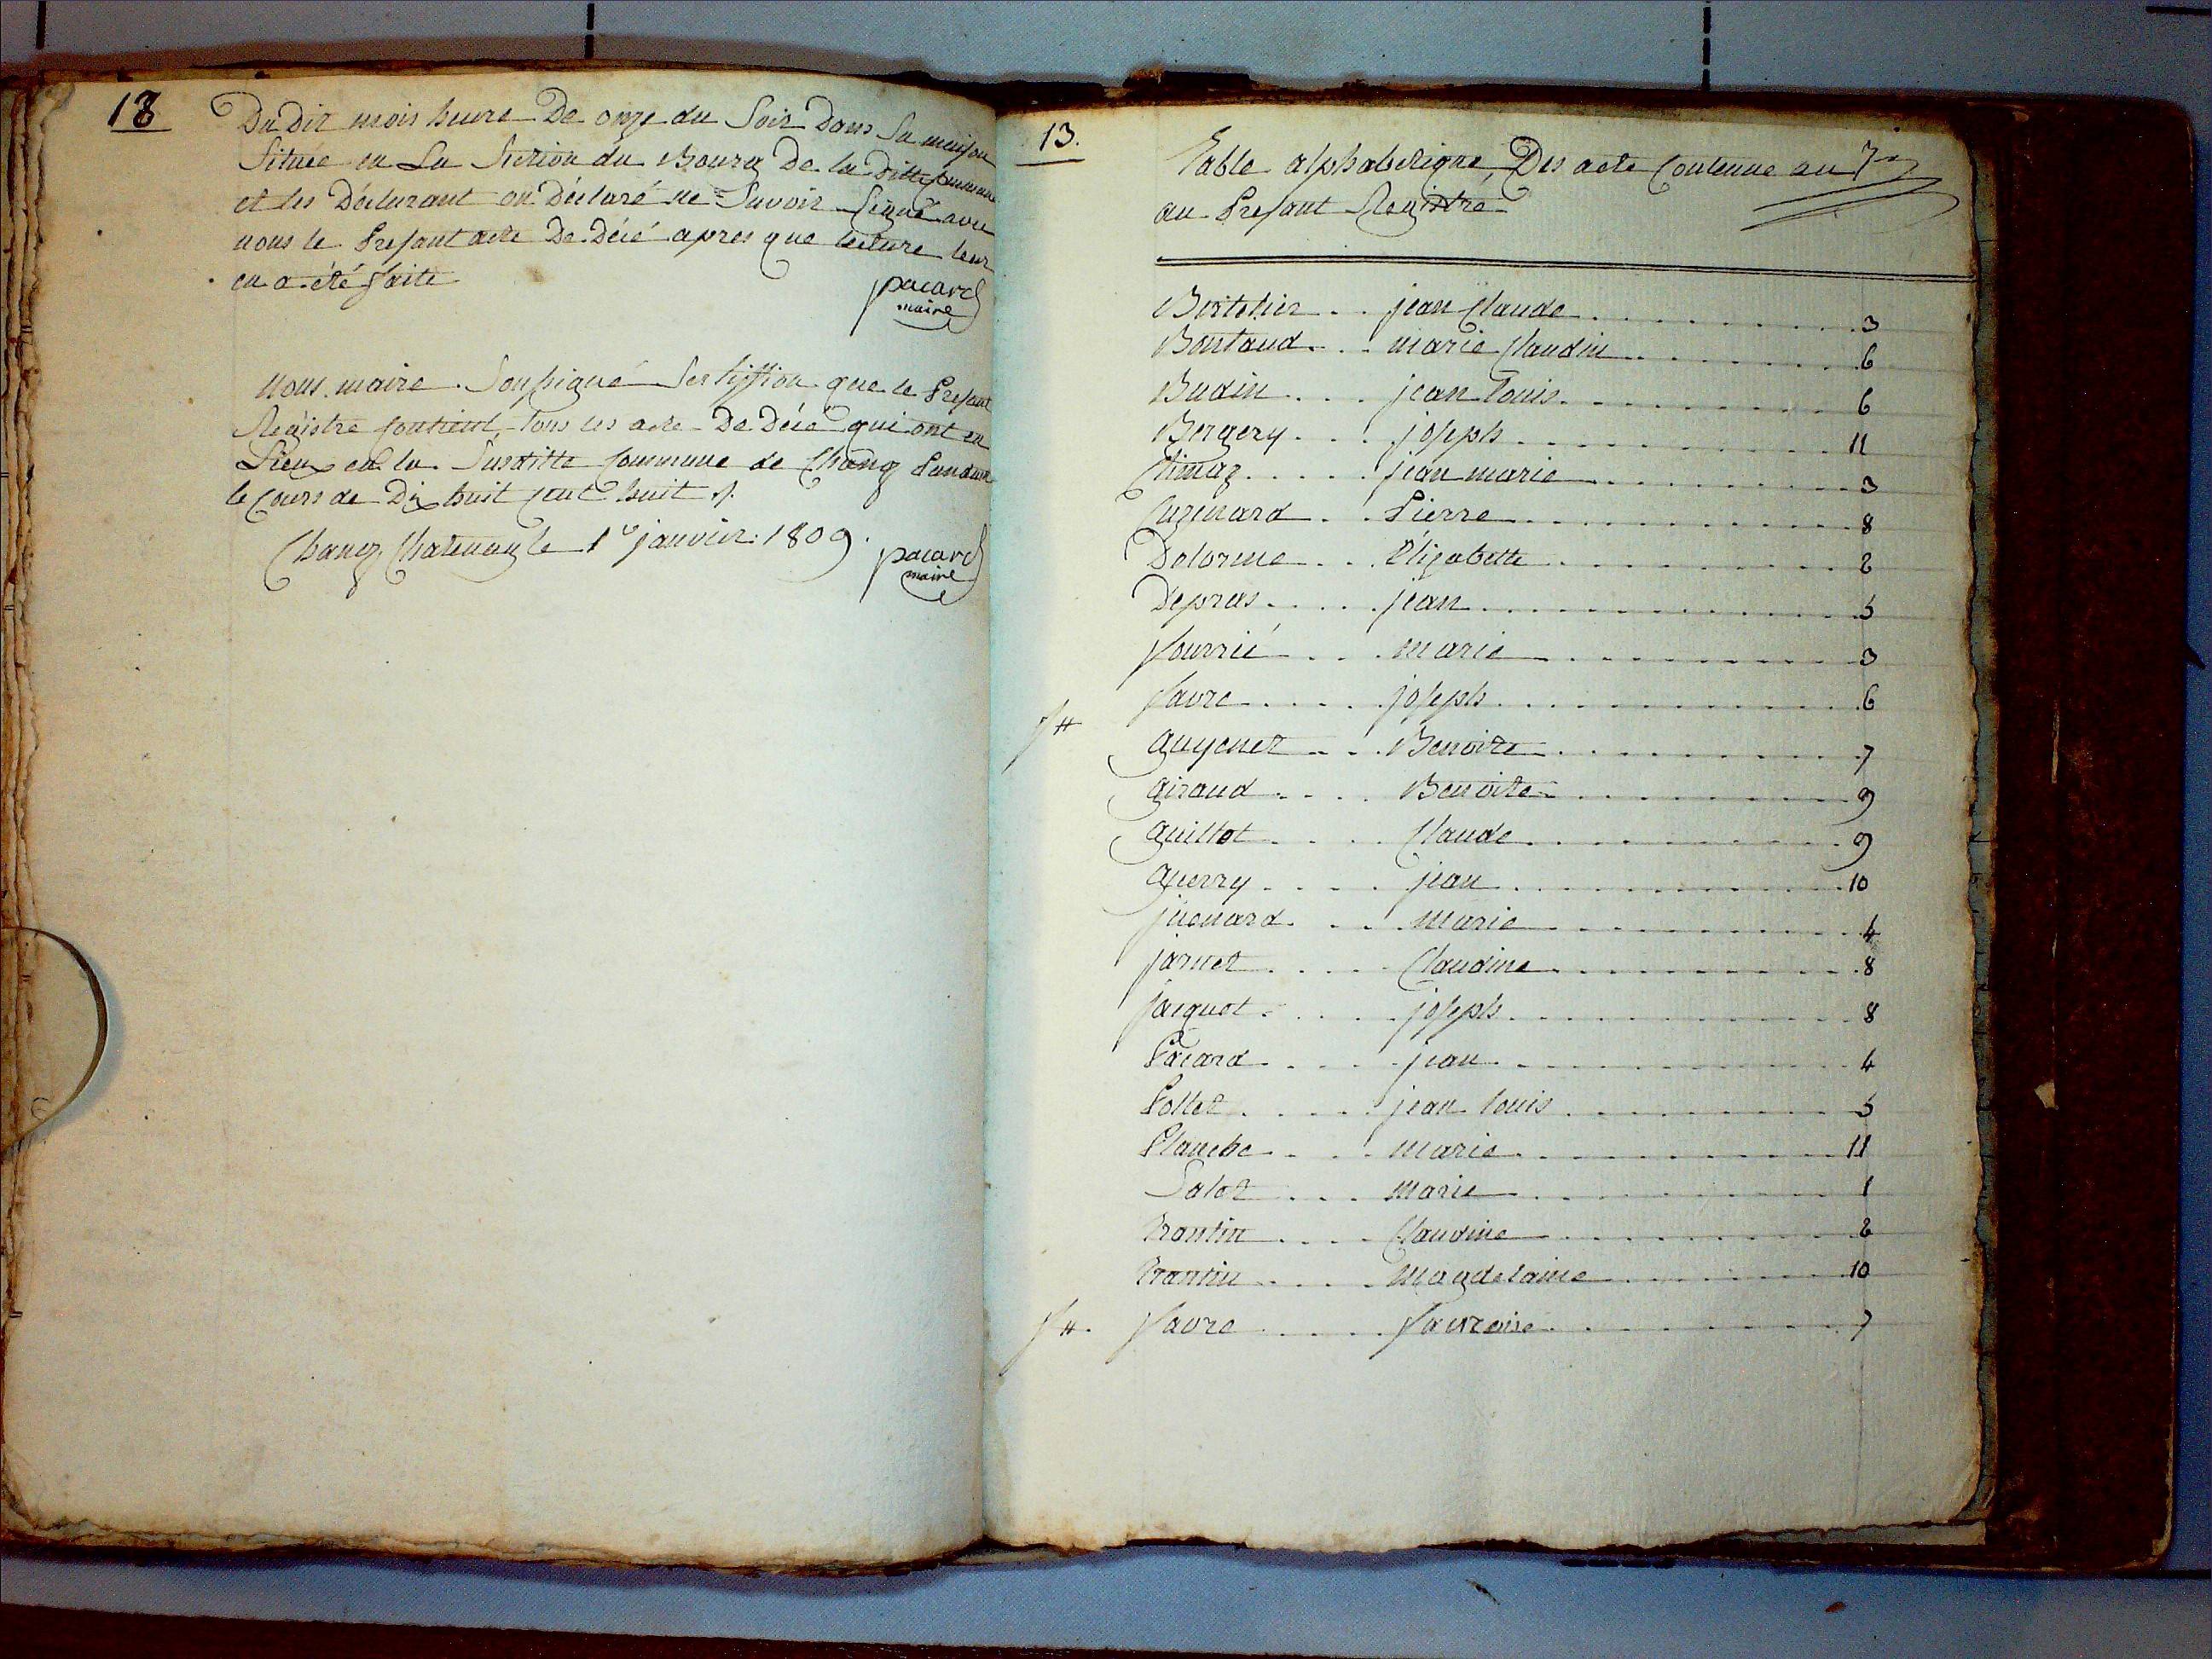 18
Du Dit mois heure De onze du Soir Dans Sa maison
Située en La Section du Bourg De la Ditte Commune
et les Déclarant on Déclaré ne Savoir Signé avec
nous le Presant acte De Décé apres que lecture leur
en a été faite
pacard
maire
nous maire Soussigné Sertiffion que le Presant
Registre Contient tous les acte De Décé qui ont eu
Lieux en la Susditte Commune de Changy Pandant
le Cours de Dix huit cent huit
Changy Chatenay le 1er janvier 1809.
pacard
maire
13.
Table alphabetique Des acte Contenue au
au Presant Registre
Bertelier . . jean Claude 3
Bontaud . . marie Claudin 6
Budin . . . . jean Louis 6
Bergery . . . joseph 11
jean marie 3
Cugenard . . Pierre 8
Delorme . . . Elizabette 2
Depras . . . . . jean 5
fourrié . . . marie 3
favre . . . . . joseph 6
guyenet . . . Benoite 7
giraud . . . . Benoite 9
guillot . . . . Claude 9
guerry . . . . jean 10
juenard . . . marie 4
jarnet . . . . . Claudine 8
jacquot . . . . . joseph 8
Pacard . . . . jean 4
Pollet . . . . . jean louis 5
Planche . . . . marie 11
Salet . . . . marie 1
trantin . . . . Claudine 2
trantin . . . . Magdelaine 10
favre . . . . . francoise 7